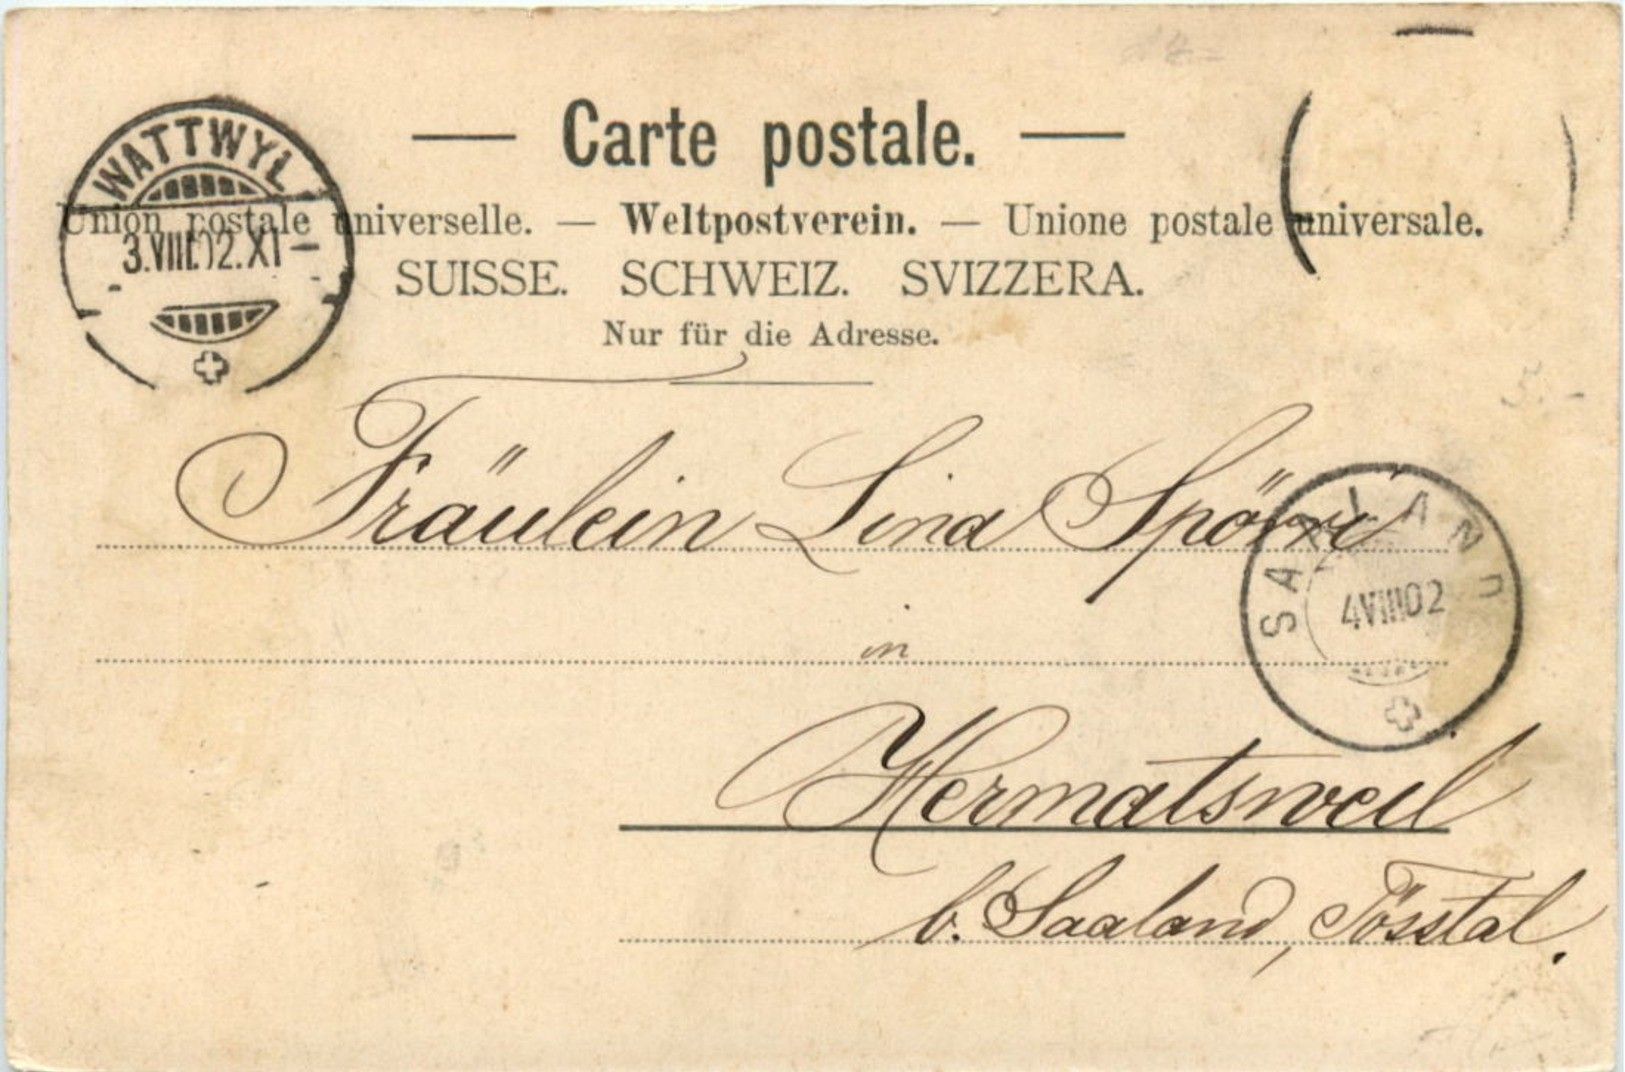 — Carte postale. —
Union postale universelle. — Weltpostverein. — Unione postale universale.
SUISSE. SCHWEIZ. SVIZZERA.
Nur für die Adresse.
WATTWYL
3.VIII.02.XI—
Fräulein Lina Spörri
in
Hermatsweil
b. Saaland, Tösstal.
SAALAND
4VIII02